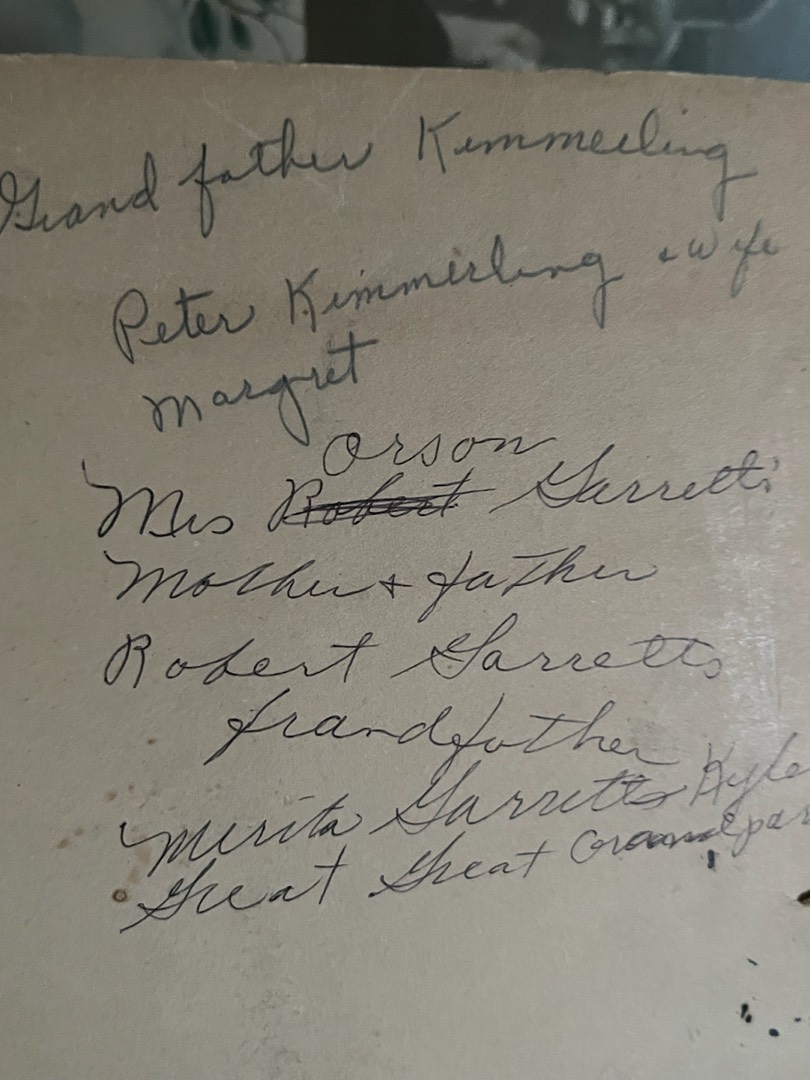 Grand father Kimmerling
Peter Kimmerling + wife
Margret
Orson
Mrs Robert Garretts
Mother + father
Robert Garretts
grandfather
Merita Garretts Kyle
Great Great Grandpar